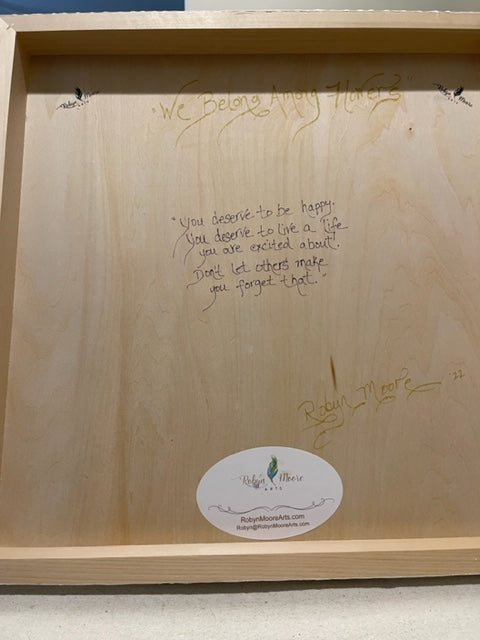 Robyn Moore
Robyn Moore
"We Belong Among Flowers"
"You deserve to be happy.
You deserve to live a life
you are excited about.
Don't let others make
you forget that."
Robyn Moore '22
Robyn Moore
ARTS
RobynMooreArts.com
Robyn@RobynMooreArts.com